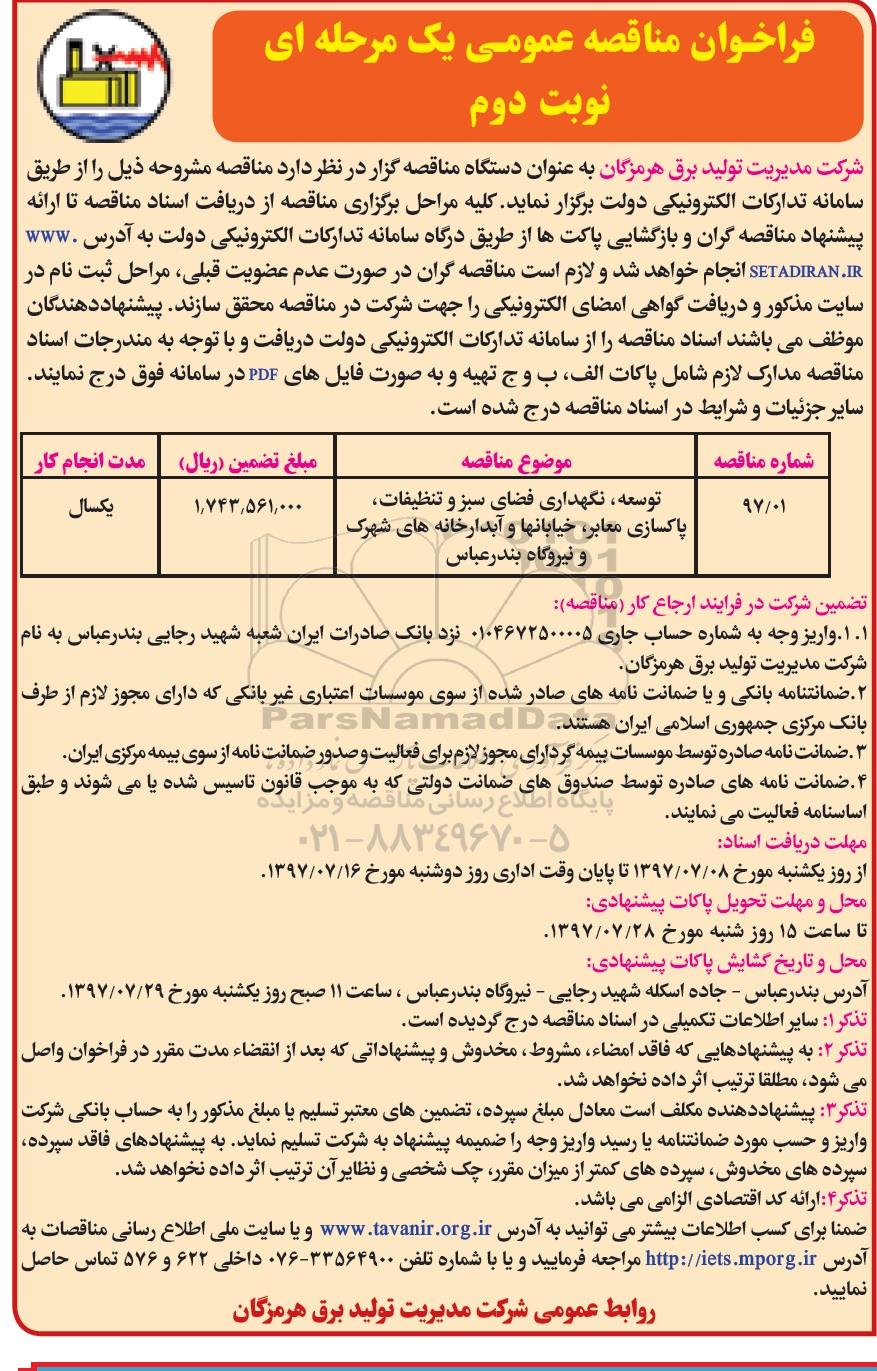 فراخوان مناقصه عمومی یک مرحله ای
نوبت دوم
شرکت مدیریت تولید برق هرمزگان به عنوان دستگاه مناقصه گزار در نظر دارد مناقصه مشروحه ذیل را از طریق
سامانه تدارکات الکترونیکی دولت برگزار نماید. کلیه مراحل برگزاری مناقصه از دریافت اسناد مناقصه تا ارائه
پیشنهاد مناقصه گران و بازگشایی پاکت ها از طریق درگاه سامانه تدارکات الکترونیکی دولت به آدرس www.
SETADIRAN.IR انجام خواهد شد و لازم است مناقصه گران در صورت عدم عضویت قبلی، مراحل ثبت نام در
سایت مذکور و دریافت گواهی امضای الکترونیکی را جهت شرکت در مناقصه محقق سازند. پیشنهاددهندگان
موظف می باشند اسناد مناقصه را از سامانه تدارکات الکترونیکی دولت دریافت و با توجه به مندرجات اسناد
مناقصه مدارک لازم شامل پاکات الف، ب و ج تهیه و به صورت فایل های PDF در سامانه فوق درج نمایند.
سایر جزئیات و شرایط در اسناد مناقصه درج شده است.
شماره مناقصه موضوع مناقصه مبلغ تضمین (ریال) مدت انجام کار
۹۷/۰۱ توسعه، نگهداری فضای سبز و تنظیفات، ۱,۷۴۳,۵۶۱,۰۰۰ یکسال
پاکسازی معابر، خیابانها و آبدارخانه های شهرک
و نیروگاه بندرعباس
تضمین شرکت در فرایند ارجاع کار (مناقصه):
۱.۱.واریز وجه به شماره حساب جاری ۰۱۰۴۶۷۲۵۰۰۰۰۵ نزد بانک صادرات ایران شعبه شهید رجایی بندرعباس به نام
شرکت مدیریت تولید برق هرمزگان.
۲.ضمانتنامه بانکی و یا ضمانت نامه های صادر شده از سوی موسسات اعتباری غیر بانکی که دارای مجوز لازم از طرف
بانک مرکزی جمهوری اسلامی ایران هستند.
ParsNamadData
۳.ضمانت نامه صادره توسط موسسات بیمه گر دارای مجوز لازم برای فعالیت و صدور ضمانت نامه از سوی بیمه مرکزی ایران.
۴.ضمانت نامه های صادره توسط صندوق های ضمانت دولتی که به موجب قانون تاسیس شده یا می شوند و طبق
پایگاه اطلاع رسانی مناقصه و مزایده
اساسنامه فعالیت می نمایند.
۰۲۱-۸۸۳۴۹۶۷۰-۵
مهلت دریافت اسناد:
از روز یکشنبه مورخ ۱۳۹۷/۰۷/۰۸ تا پایان وقت اداری روز دوشنبه مورخ ۱۳۹۷/۰۷/۱۶.
محل و مهلت تحویل پاکات پیشنهادی:
تا ساعت ۱۵ روز شنبه مورخ ۱۳۹۷/۰۷/۲۸.
محل و تاریخ گشایش پاکات پیشنهادی:
آدرس بندرعباس - جاده اسکله شهید رجایی - نیروگاه بندرعباس ، ساعت ۱۱ صبح روز یکشنبه مورخ ۱۳۹۷/۰۷/۲۹.
تذکر۱: سایر اطلاعات تکمیلی در اسناد مناقصه درج گردیده است.
تذکر۲: به پیشنهادهایی که فاقد امضاء، مشروط، مخدوش و پیشنهاداتی که بعد از انقضاء مدت مقرر در فراخوان واصل
می شود، مطلقا ترتیب اثر داده نخواهد شد.
تذکر۳: پیشنهاددهنده مکلف است معادل مبلغ سپرده، تضمین های معتبر تسلیم یا مبلغ مذکور را به حساب بانکی شرکت
واریز و حسب مورد ضمانتنامه یا رسید واریز وجه را ضمیمه پیشنهاد به شرکت تسلیم نماید. به پیشنهادهای فاقد سپرده،
سپرده های مخدوش، سپرده های کمتر از میزان مقرر، چک شخصی و نظایر آن ترتیب اثر داده نخواهد شد.
تذکر۴:ارائه کد اقتصادی الزامی می باشد.
ضمنا برای کسب اطلاعات بیشتر می توانید به آدرس www.tavanir.org.ir و یا سایت ملی اطلاع رسانی مناقصات به
آدرس http://iets.mporg.ir مراجعه فرمایید و یا با شماره تلفن ۳۳۵۶۴۹۰۰-۰۷۶ داخلی ۶۲۲ و ۵۷۶ تماس حاصل
نمایید.
روابط عمومی شرکت مدیریت تولید برق هرمزگان